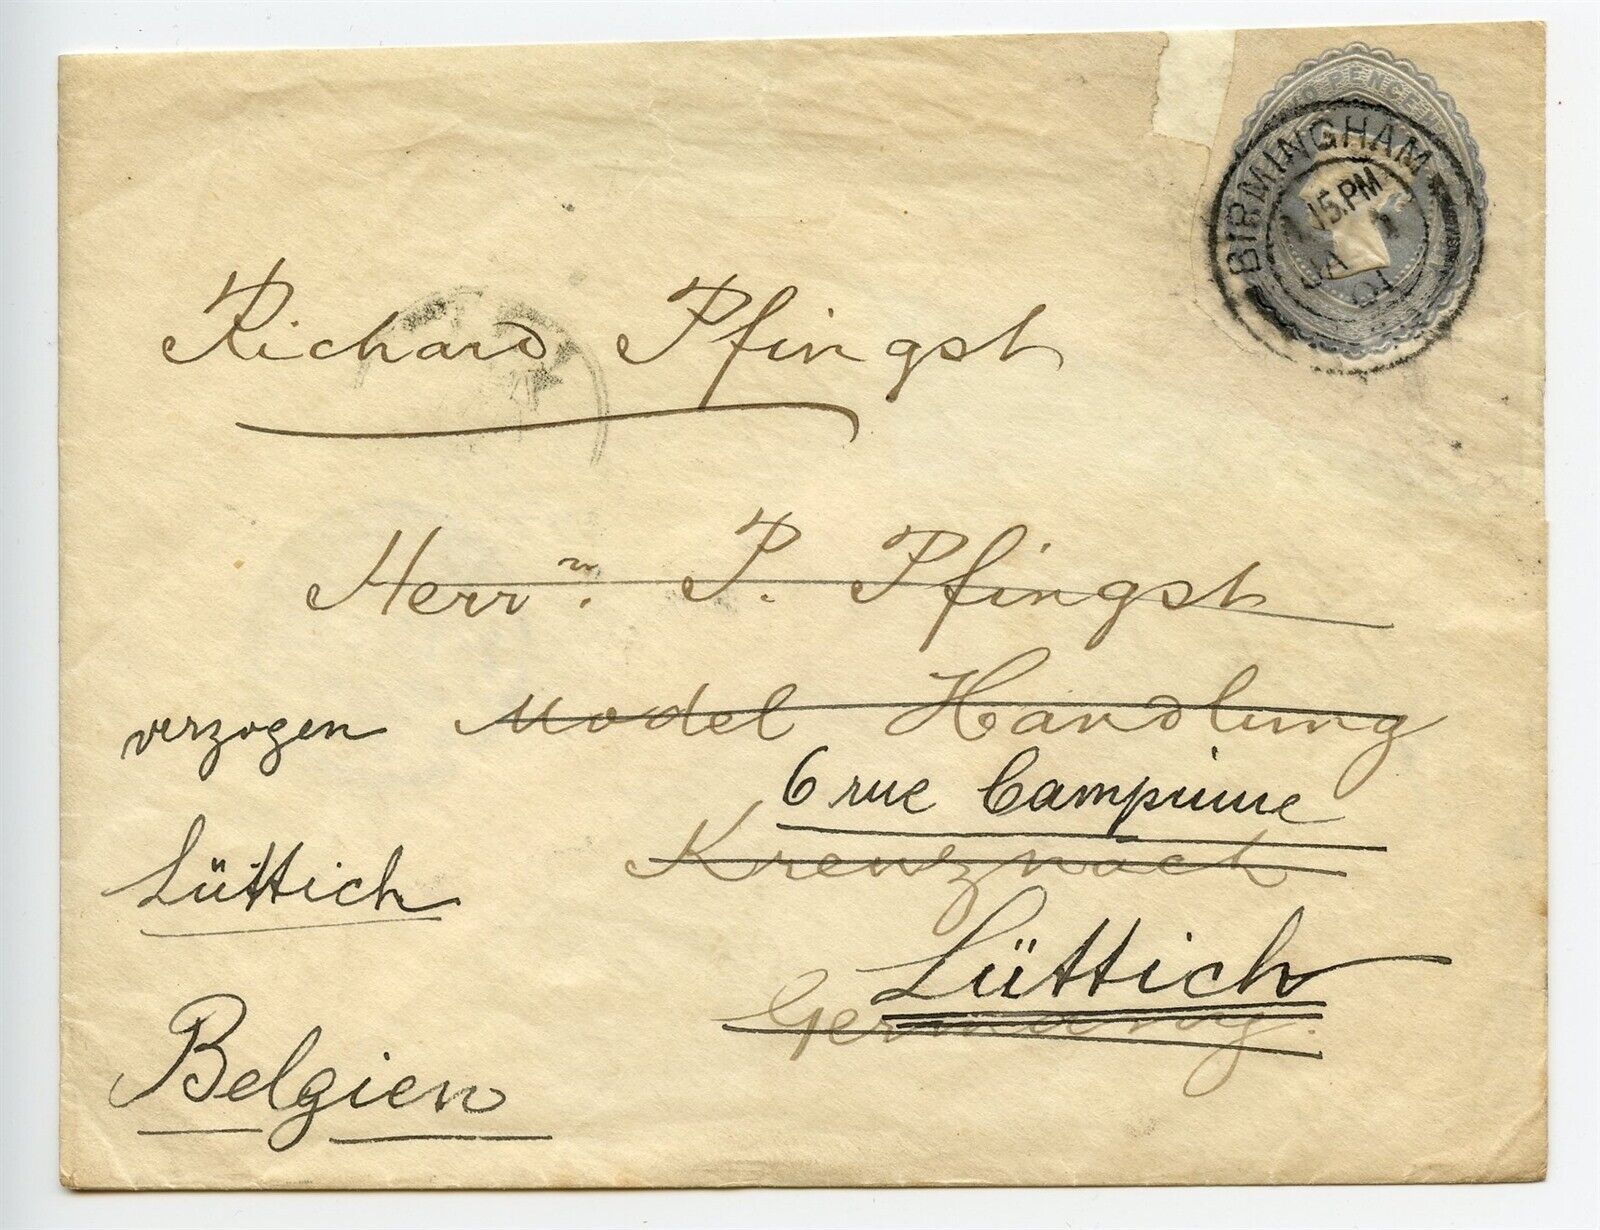 PENCE
BIRMINGHAM
15.PM
JA
01
Richard Pfingst
Herrn. P. Pfingst
verzogen Model Handlung
6 rue Campinne
Lüttich Kreuznach
Lüttich
Germany.
Belgien